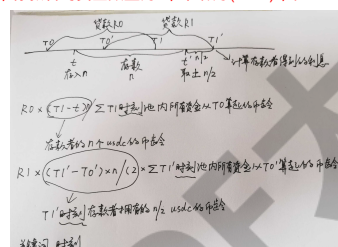 贷款R0 贷款R1
T0 T0' T1 T1'
t 存款 t' n/2 计算存款者得到的利息
存入n n 取出n/2
R0 × (T1-t)n / ∑ T1时刻池内所有资金从T0算起的币龄
存款者的n个usdc的币龄
R1 × (T1'-T0')×n/(2 × ∑ T1'时刻池内所有资金从T0'算起的币龄
T1'时刻存款者拥有的n/2 usdc的币龄
关键词 时刻